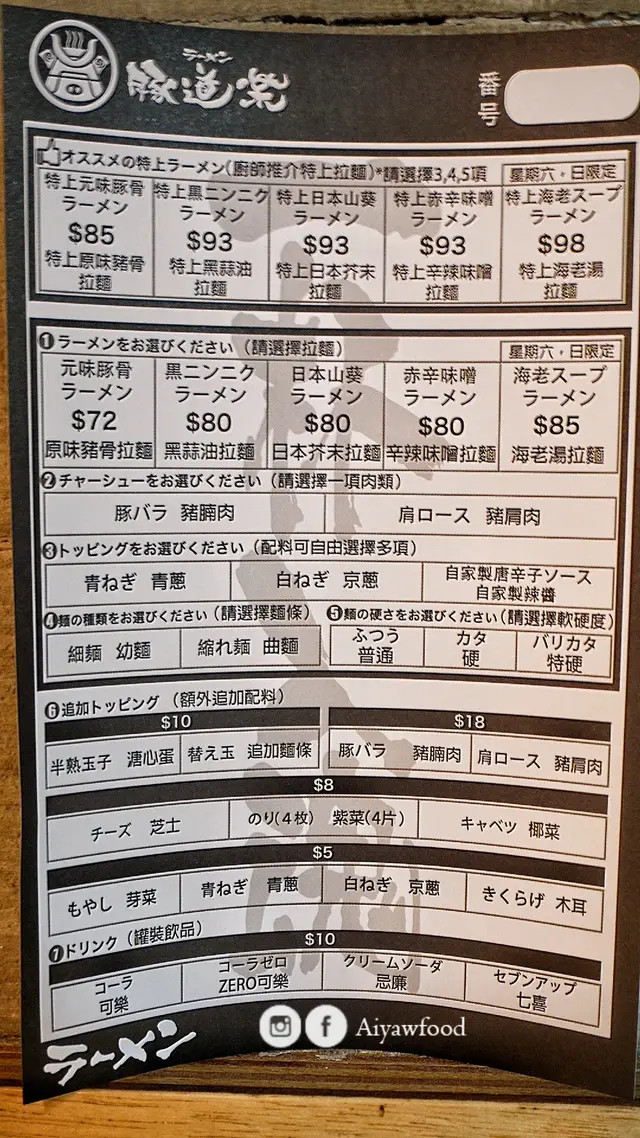 ラーメン
豚道楽
番号
オススメの特上ラーメン(廚師推介特上拉麵)*請選擇3,4,5項 星期六，日限定
特上元味豚骨ラーメン $85 特上原味豬骨拉麵
特上黒ニンニクラーメン $93 特上黑蒜油拉麵
特上日本山葵ラーメン $93 特上日本芥末拉麵
特上赤辛味噌ラーメン $93 特上辛辣味噌拉麵
特上海老スープラーメン $98 特上海老湯拉麵
❶ラーメンをお選びください（請選擇拉麵） 星期六，日限定
元味豚骨ラーメン $72 原味豬骨拉麵
黒ニンニクラーメン $80 黑蒜油拉麵
日本山葵ラーメン $80 日本芥末拉麵
赤辛味噌ラーメン $80 辛辣味噌拉麵
海老スープラーメン $85 海老湯拉麵
❷チャーシューをお選びください（請選擇一項肉類）
豚バラ 豬腩肉 肩ロース 豬肩肉
❸トッピングをお選びください（配料可自由選擇多項）
青ねぎ 青蔥 白ねぎ 京蔥 自家製唐辛子ソース 自家製辣醬
❹麺の種類をお選びください（請選擇麵條）
細麺 幼麵 縮れ麺 曲麵
❺麺の硬さをお選びください（請選擇軟硬度）
ふつう 普通 カタ 硬 バリカタ 特硬
❻追加トッピング（額外追加配料）
$10
半熟玉子 溏心蛋 替え玉 追加麵條
$18
豚バラ 豬腩肉 肩ロース 豬肩肉
$8
チーズ 芝士 のり(4枚) 紫菜(4片) キャベツ 椰菜
$5
もやし 芽菜 青ねぎ 青蔥 白ねぎ 京蔥 きくらげ 木耳
❼ドリンク（罐裝飲品）
$10
コーラ 可樂 コーラゼロ ZERO可樂 クリームソーダ 忌廉 セブンアップ 七喜
Aiyawfood
ラーメン